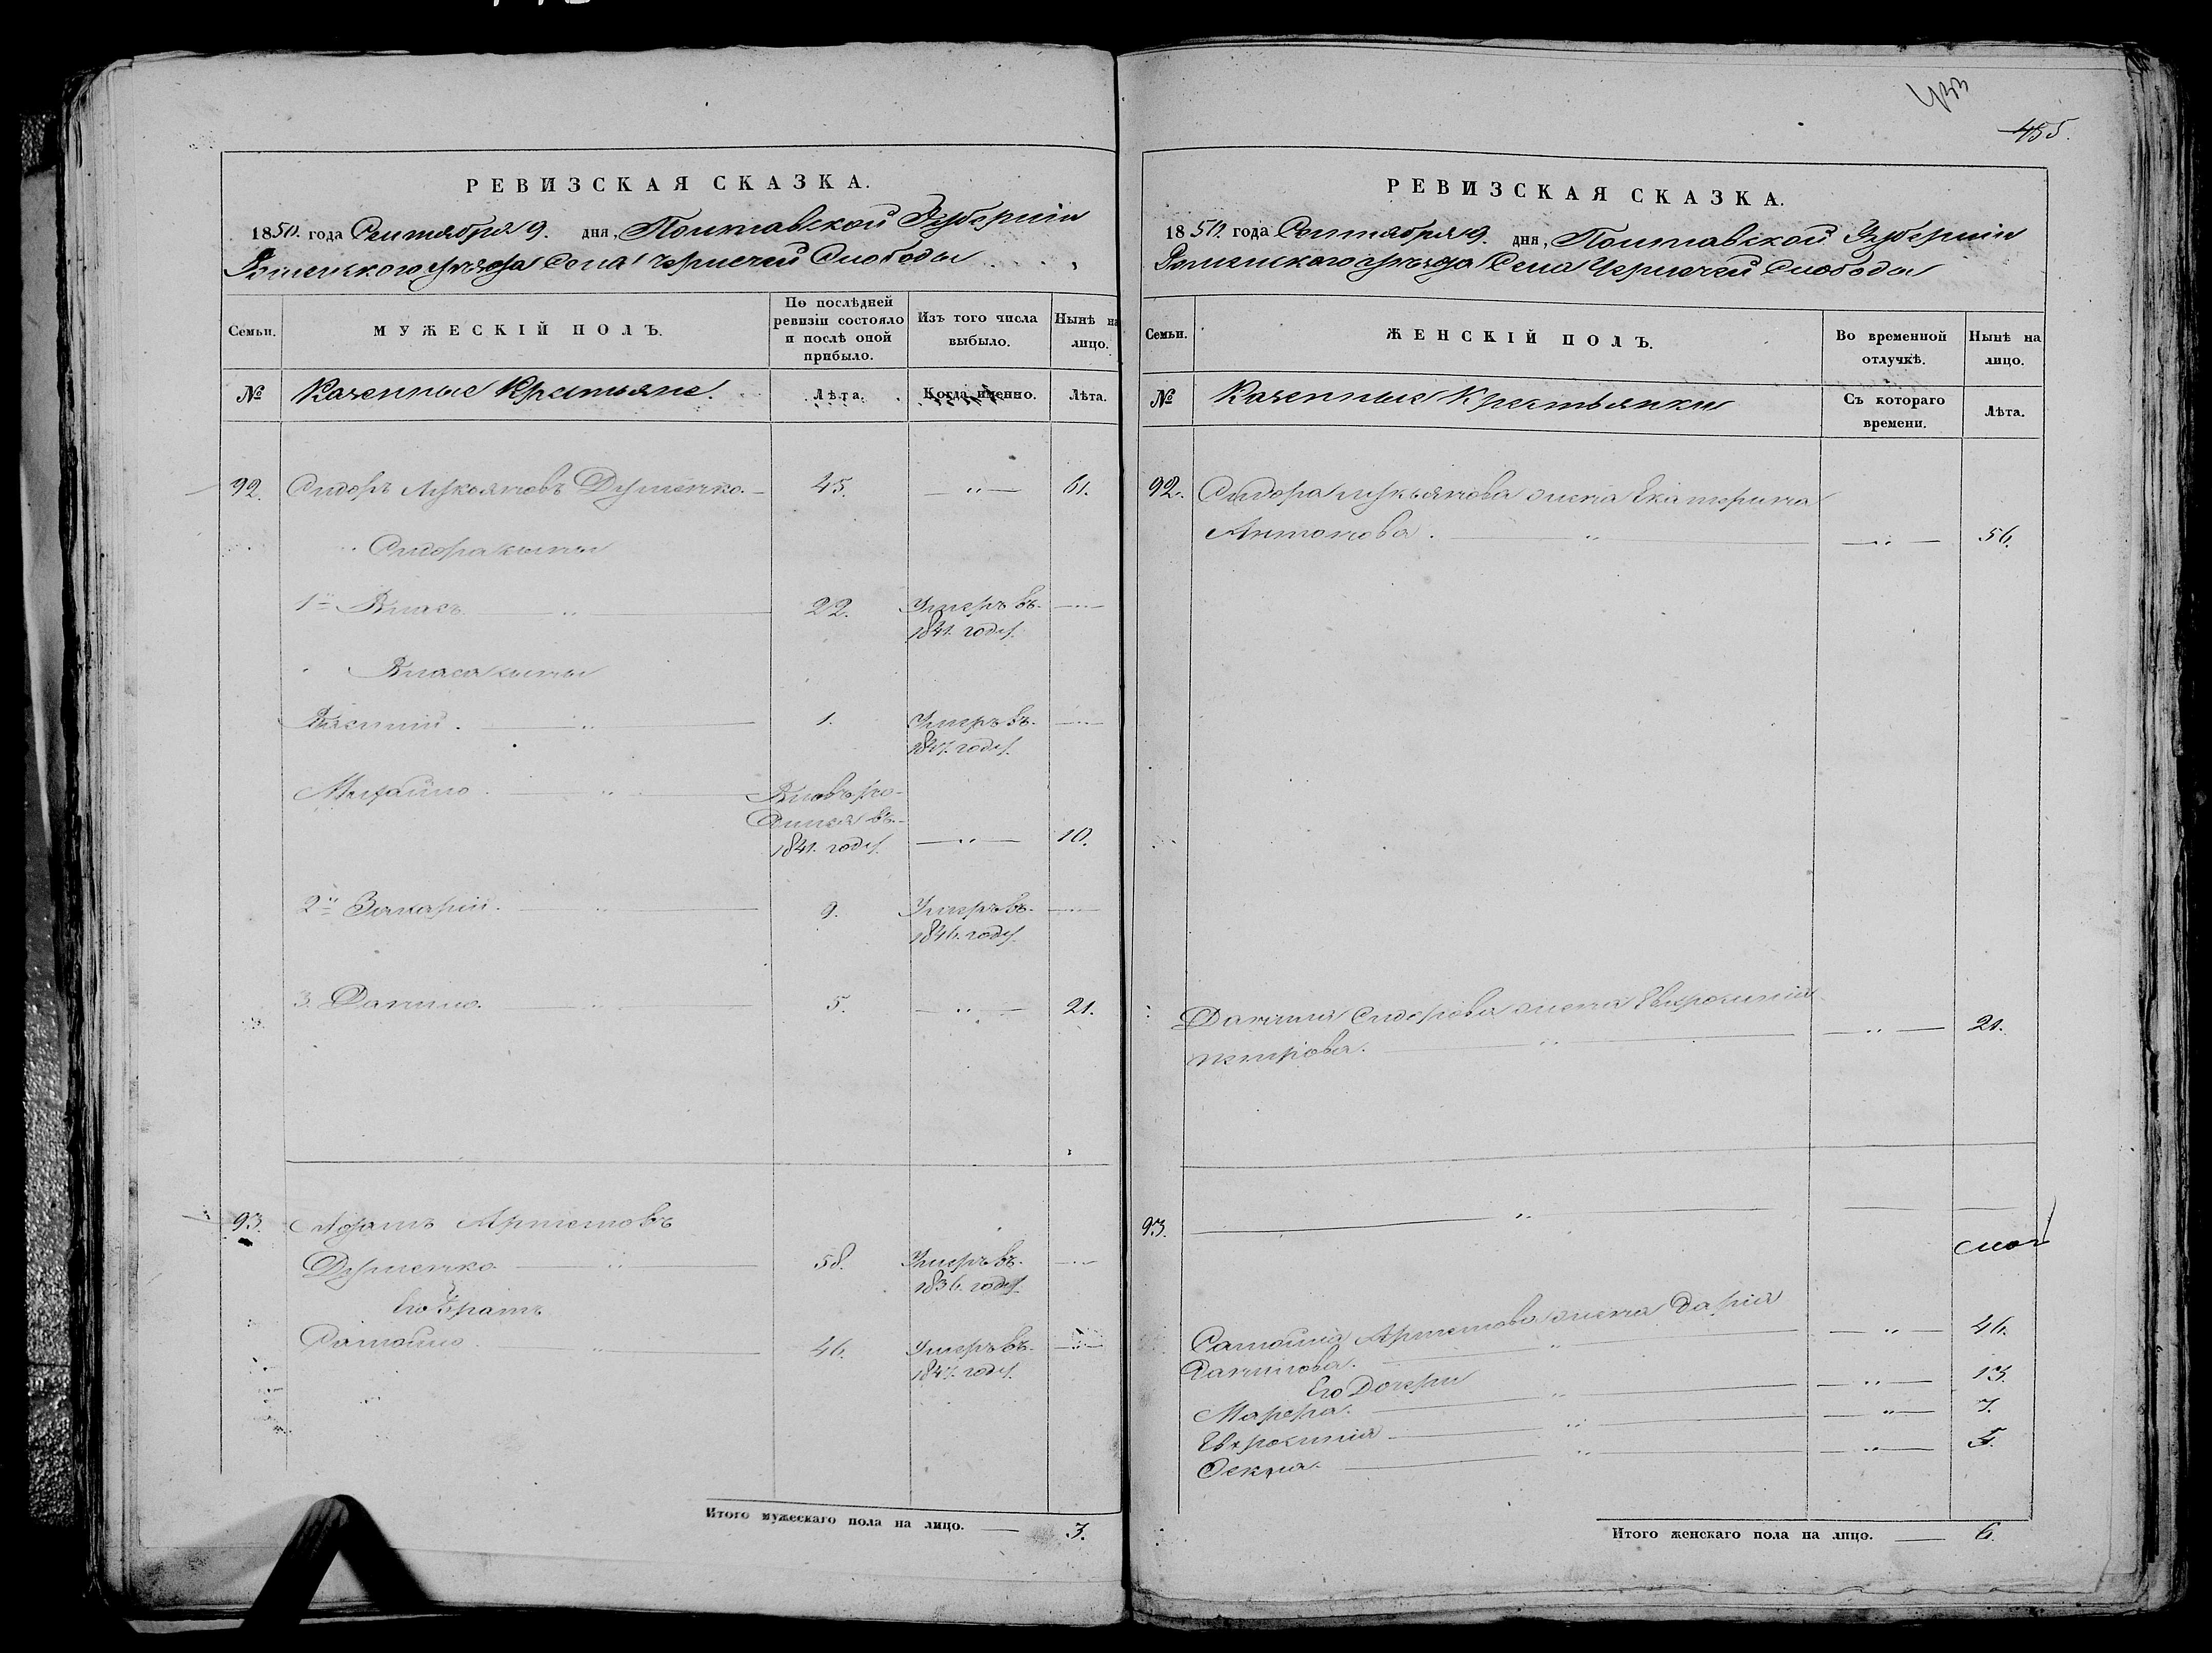 433
455.
РЕВИЗСКАЯ СКАЗКА.
1850. года Сентября 9. дня, Полтавской Губернии
Роменского уѣзда Села Чернечей Слободы
Семьи.
МУЖЕСКІЙ ПОЛЪ.
По послѣдней ревизіи состояло и послѣ оной прибыло.
Изъ того числа выбыло.
Нынѣ на лицо.
№
Казенные Крестьяне.
Лѣта.
Когда именно.
Лѣта.
92. Сидоръ Лукьяновъ Дученко. 45. — „ — 61.
Сидора сыны
1й Власъ — „ — 22. Умеръ въ
1841. году.
Власа сыны
Василій. — „ — 1. Умеръ въ
1847. году.
Михайло. — „ — Вновь ро-
дился въ
1841. году. — „ — 10.
2й Захарій. — „ — 9. Умеръ въ
1846. году.
3. Данило. — „ — 5. — „ — 21.
93. Адамъ Артемовъ
— „ — 58. Умеръ въ
1836. году.
Его братъ
Самойло. — „ — 46. Умеръ въ
1847. году.
Итого мужескаго пола на лицо. — 3.
РЕВИЗСКАЯ СКАЗКА.
1850. года Сентября 9. дня, Полтавской Губернии
Роменскаго уѣзда Села Чернечей Слободы
Семьи.
ЖЕНСКІЙ ПОЛЪ.
Во временной отлучкѣ.
Нынѣ на лицо.
№
Казенные Крестьянки
Съ котораго времени.
Лѣта.
92. Сидора Лукьянова жена Екатерина
Антонова. — „ — — „ — 56.
Данила Сидорова жена Евфросинія
Петрова. — „ — — „ — 21.
93. — „ —
Самойла Артемова жена Дарія
Данилова. — „ — — „ — 46.
Его Дочери
Марфа. — „ — — „ — 13.
Евфросинія — „ — — „ — 7.
Фекла. — „ — — „ — 5.
Итого женскаго пола на лицо. — 6.